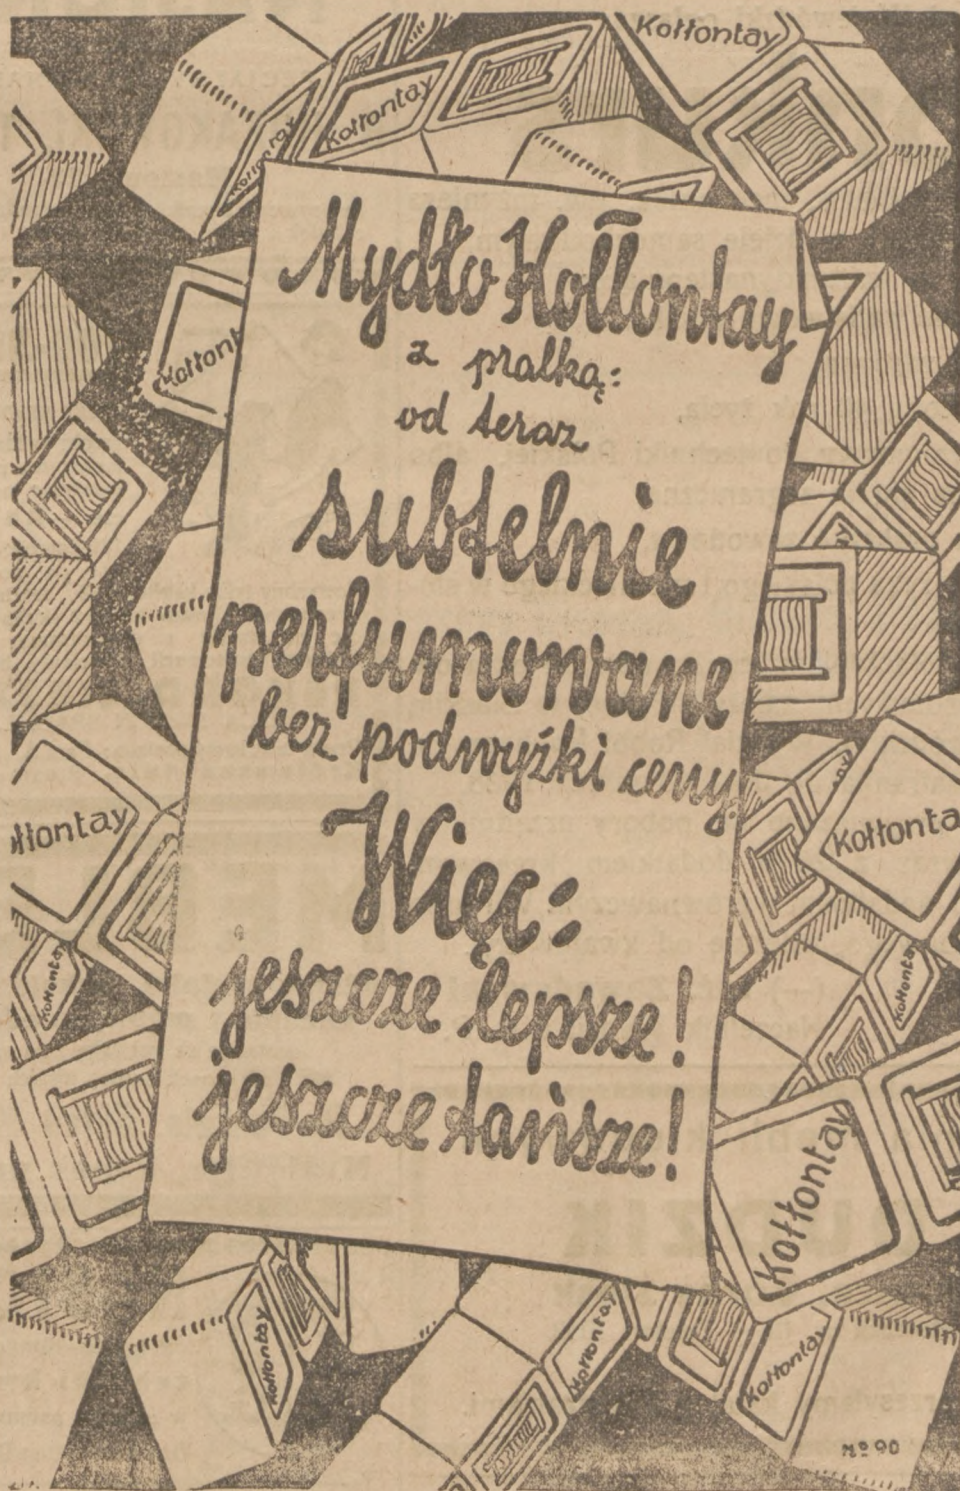 Kołłontay
Kołłontay
Kołłontay
Mydło Kołłontay
z pralką:
od teraz
subtelnie
perfumowane
bez podwyżki ceny.
Więc:
jeszcze lepsze!
jeszcze tańsze!
Kołłont
ołłontay
Kołłonta
Kołłontay
Kołłontay
Kołłontay
Kołłontay
Kołłontay
Kołłontay
No 90